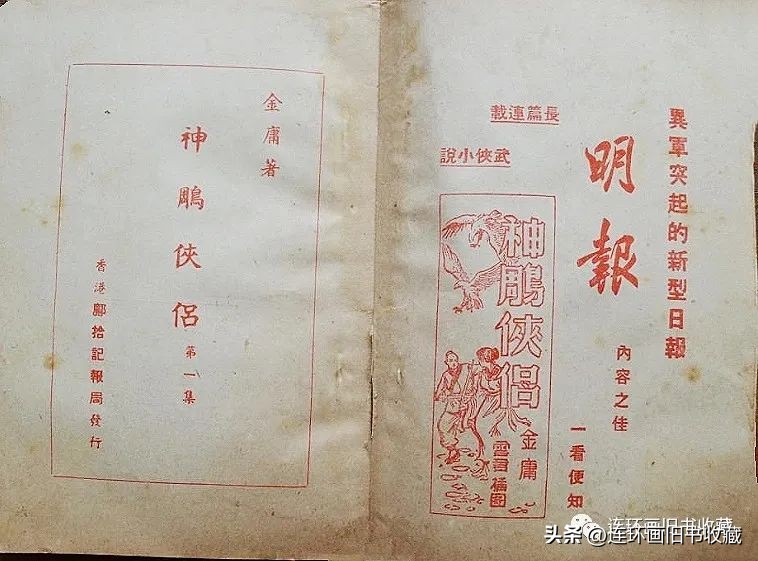 異軍突起的新型日報
明報
內容之佳
一看便知
長篇連載
武俠小說
神鵰俠侶
金庸
雲君插圖
金庸著
神鵰俠侶 第一集
香港鄺拾記報局發行
连环画旧书收藏
头条 @连环画旧书收藏